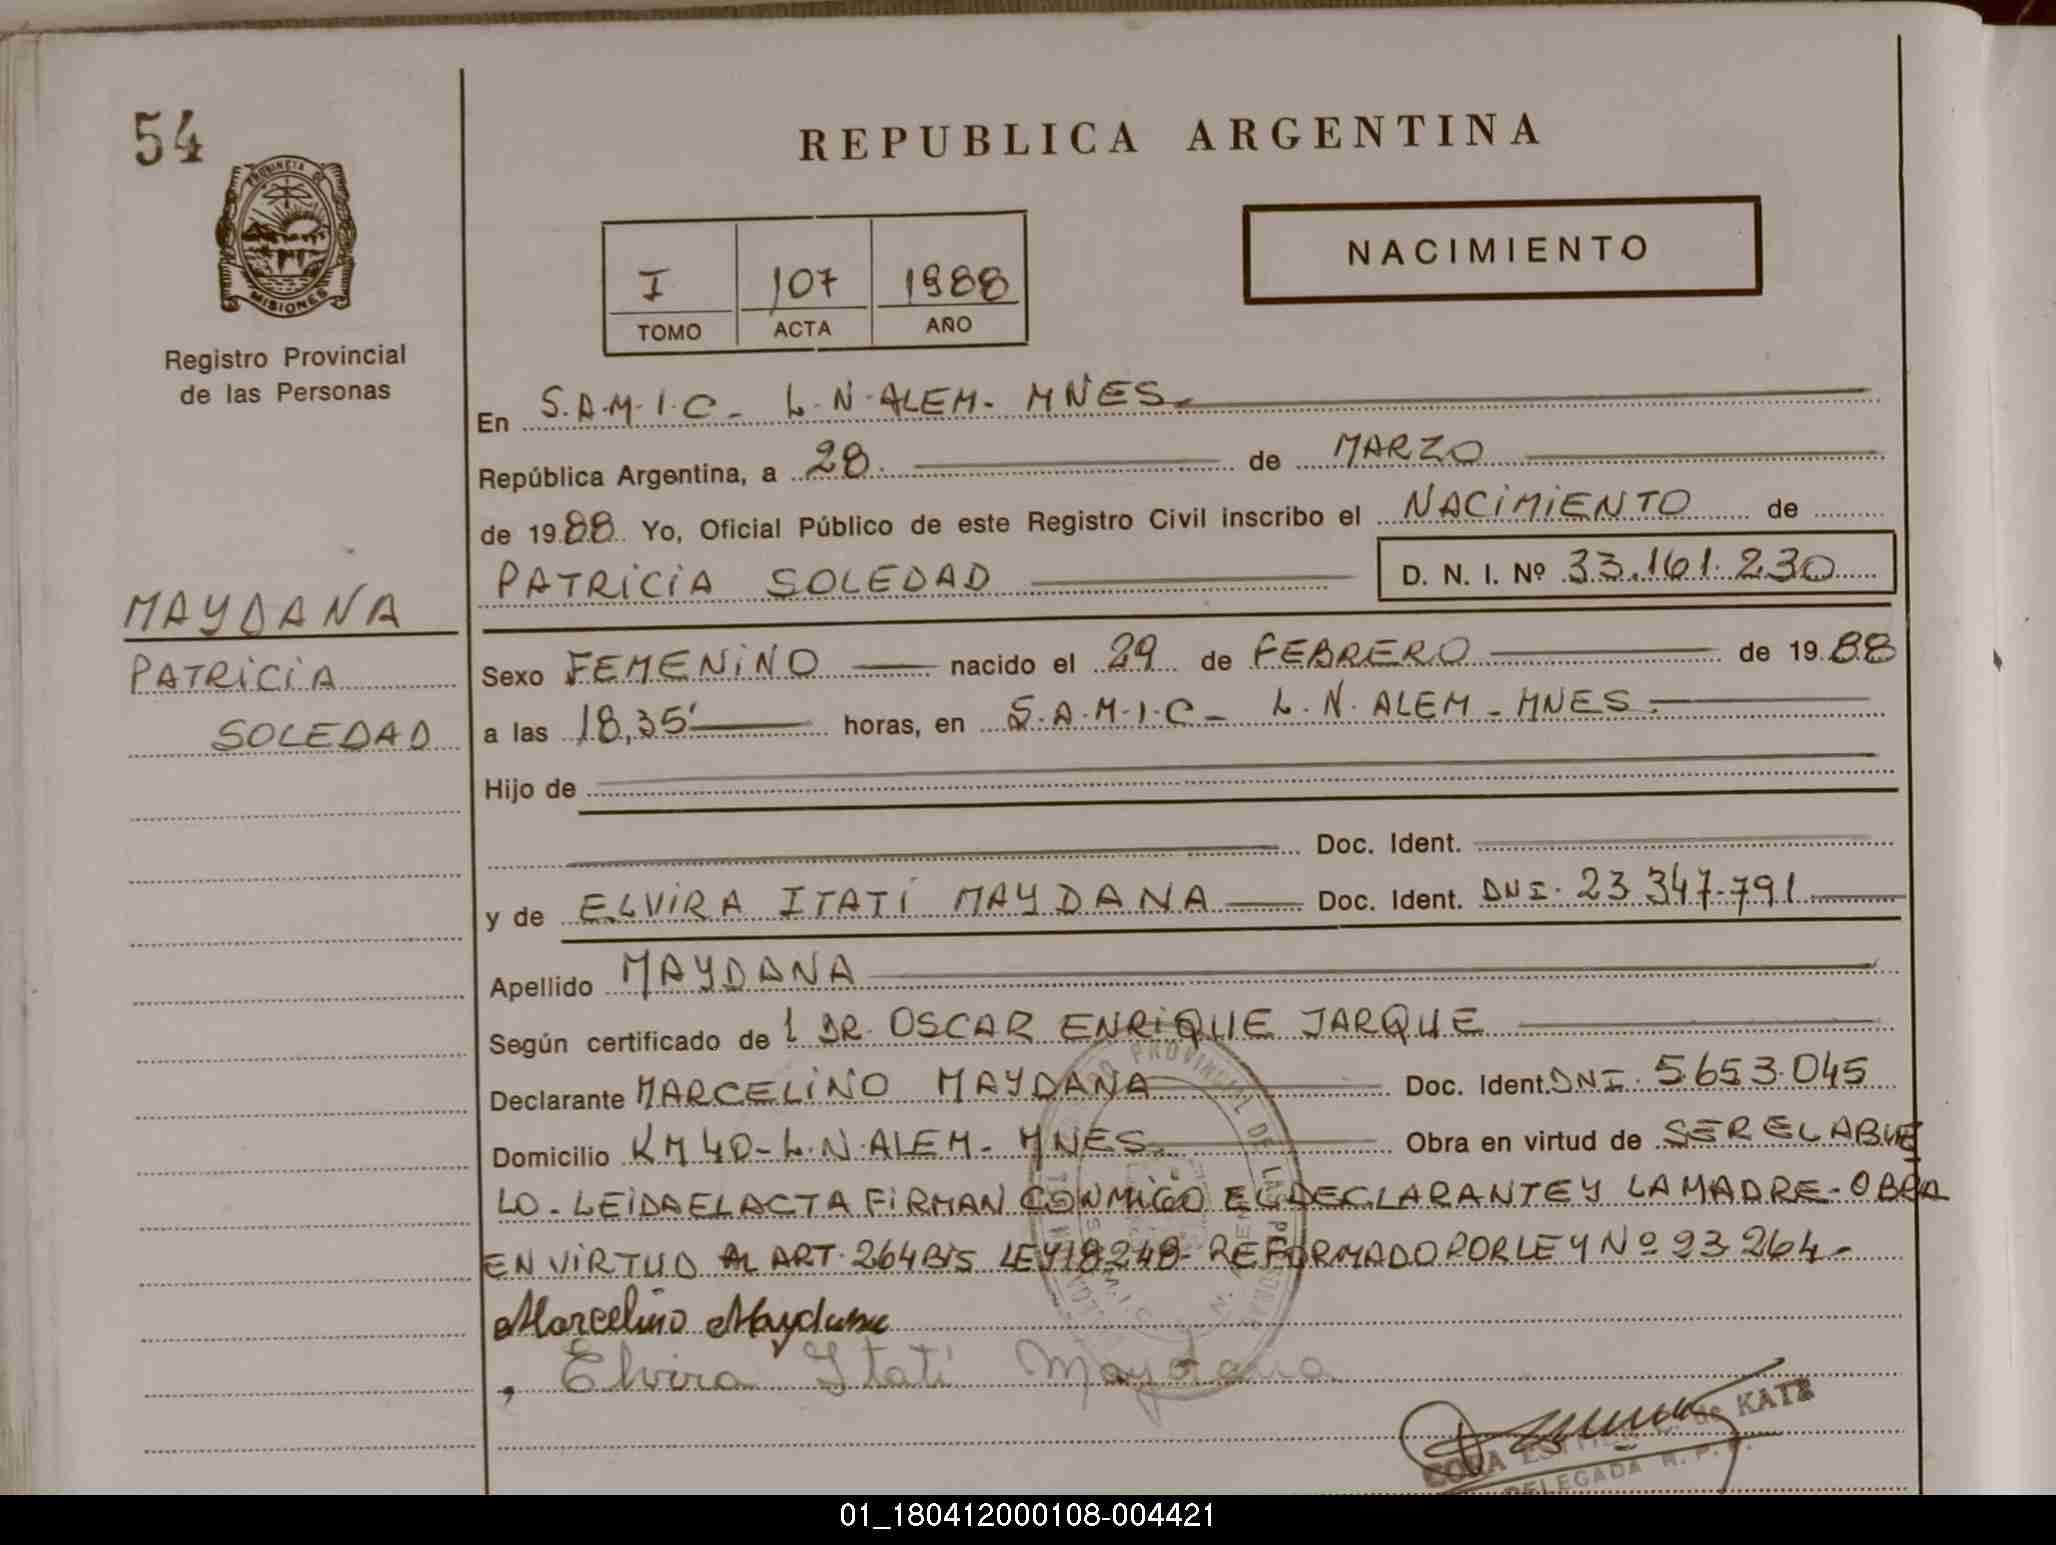 54
REPUBLICA ARGENTINA
PROVINCIA DE
MISIONES
Registro Provincial
de las Personas
NACIMIENTO
I 107 1988
TOMO ACTA AÑO
En S.A.M.I.C - L.N.ALEM - MNES
República Argentina, a 28 de MARZO
de 1988 Yo, Oficial Público de este Registro Civil inscribo el NACIMIENTO de
PATRICIA SOLEDAD D. N. I. Nº 33.161.230
MAYDANA
PATRICIA
SOLEDAD
Sexo FEMENINO nacido el 29 de FEBRERO de 1988
a las 18,35' horas, en S.A.M.I.C - L.N.ALEM - MNES
Hijo de
Doc. Ident.
y de ELVIRA ITATÍ MAYDANA Doc. Ident. DNI. 23.347.791
Apellido MAYDANA
Según certificado de l DR. OSCAR ENRIQUE JARQUE
Declarante MARCELINO MAYDANA Doc. Ident. DNI. 5.653.045
Domicilio KM 40 - L.N.ALEM - MNES Obra en virtud de SER EL ABUE
LO - LEIDA EL ACTA FIRMAN CONMIGO EL DECLARANTE Y LA MADRE - OBRA
EN VIRTUD AL ART. 264 BIS LEY 18248 REFORMADO POR LEY Nº 23264 -
Marcelino Maydana
Elvira Itatí Maydana
de KATZ
DELEGADA R. P.
01_180412000108-004421